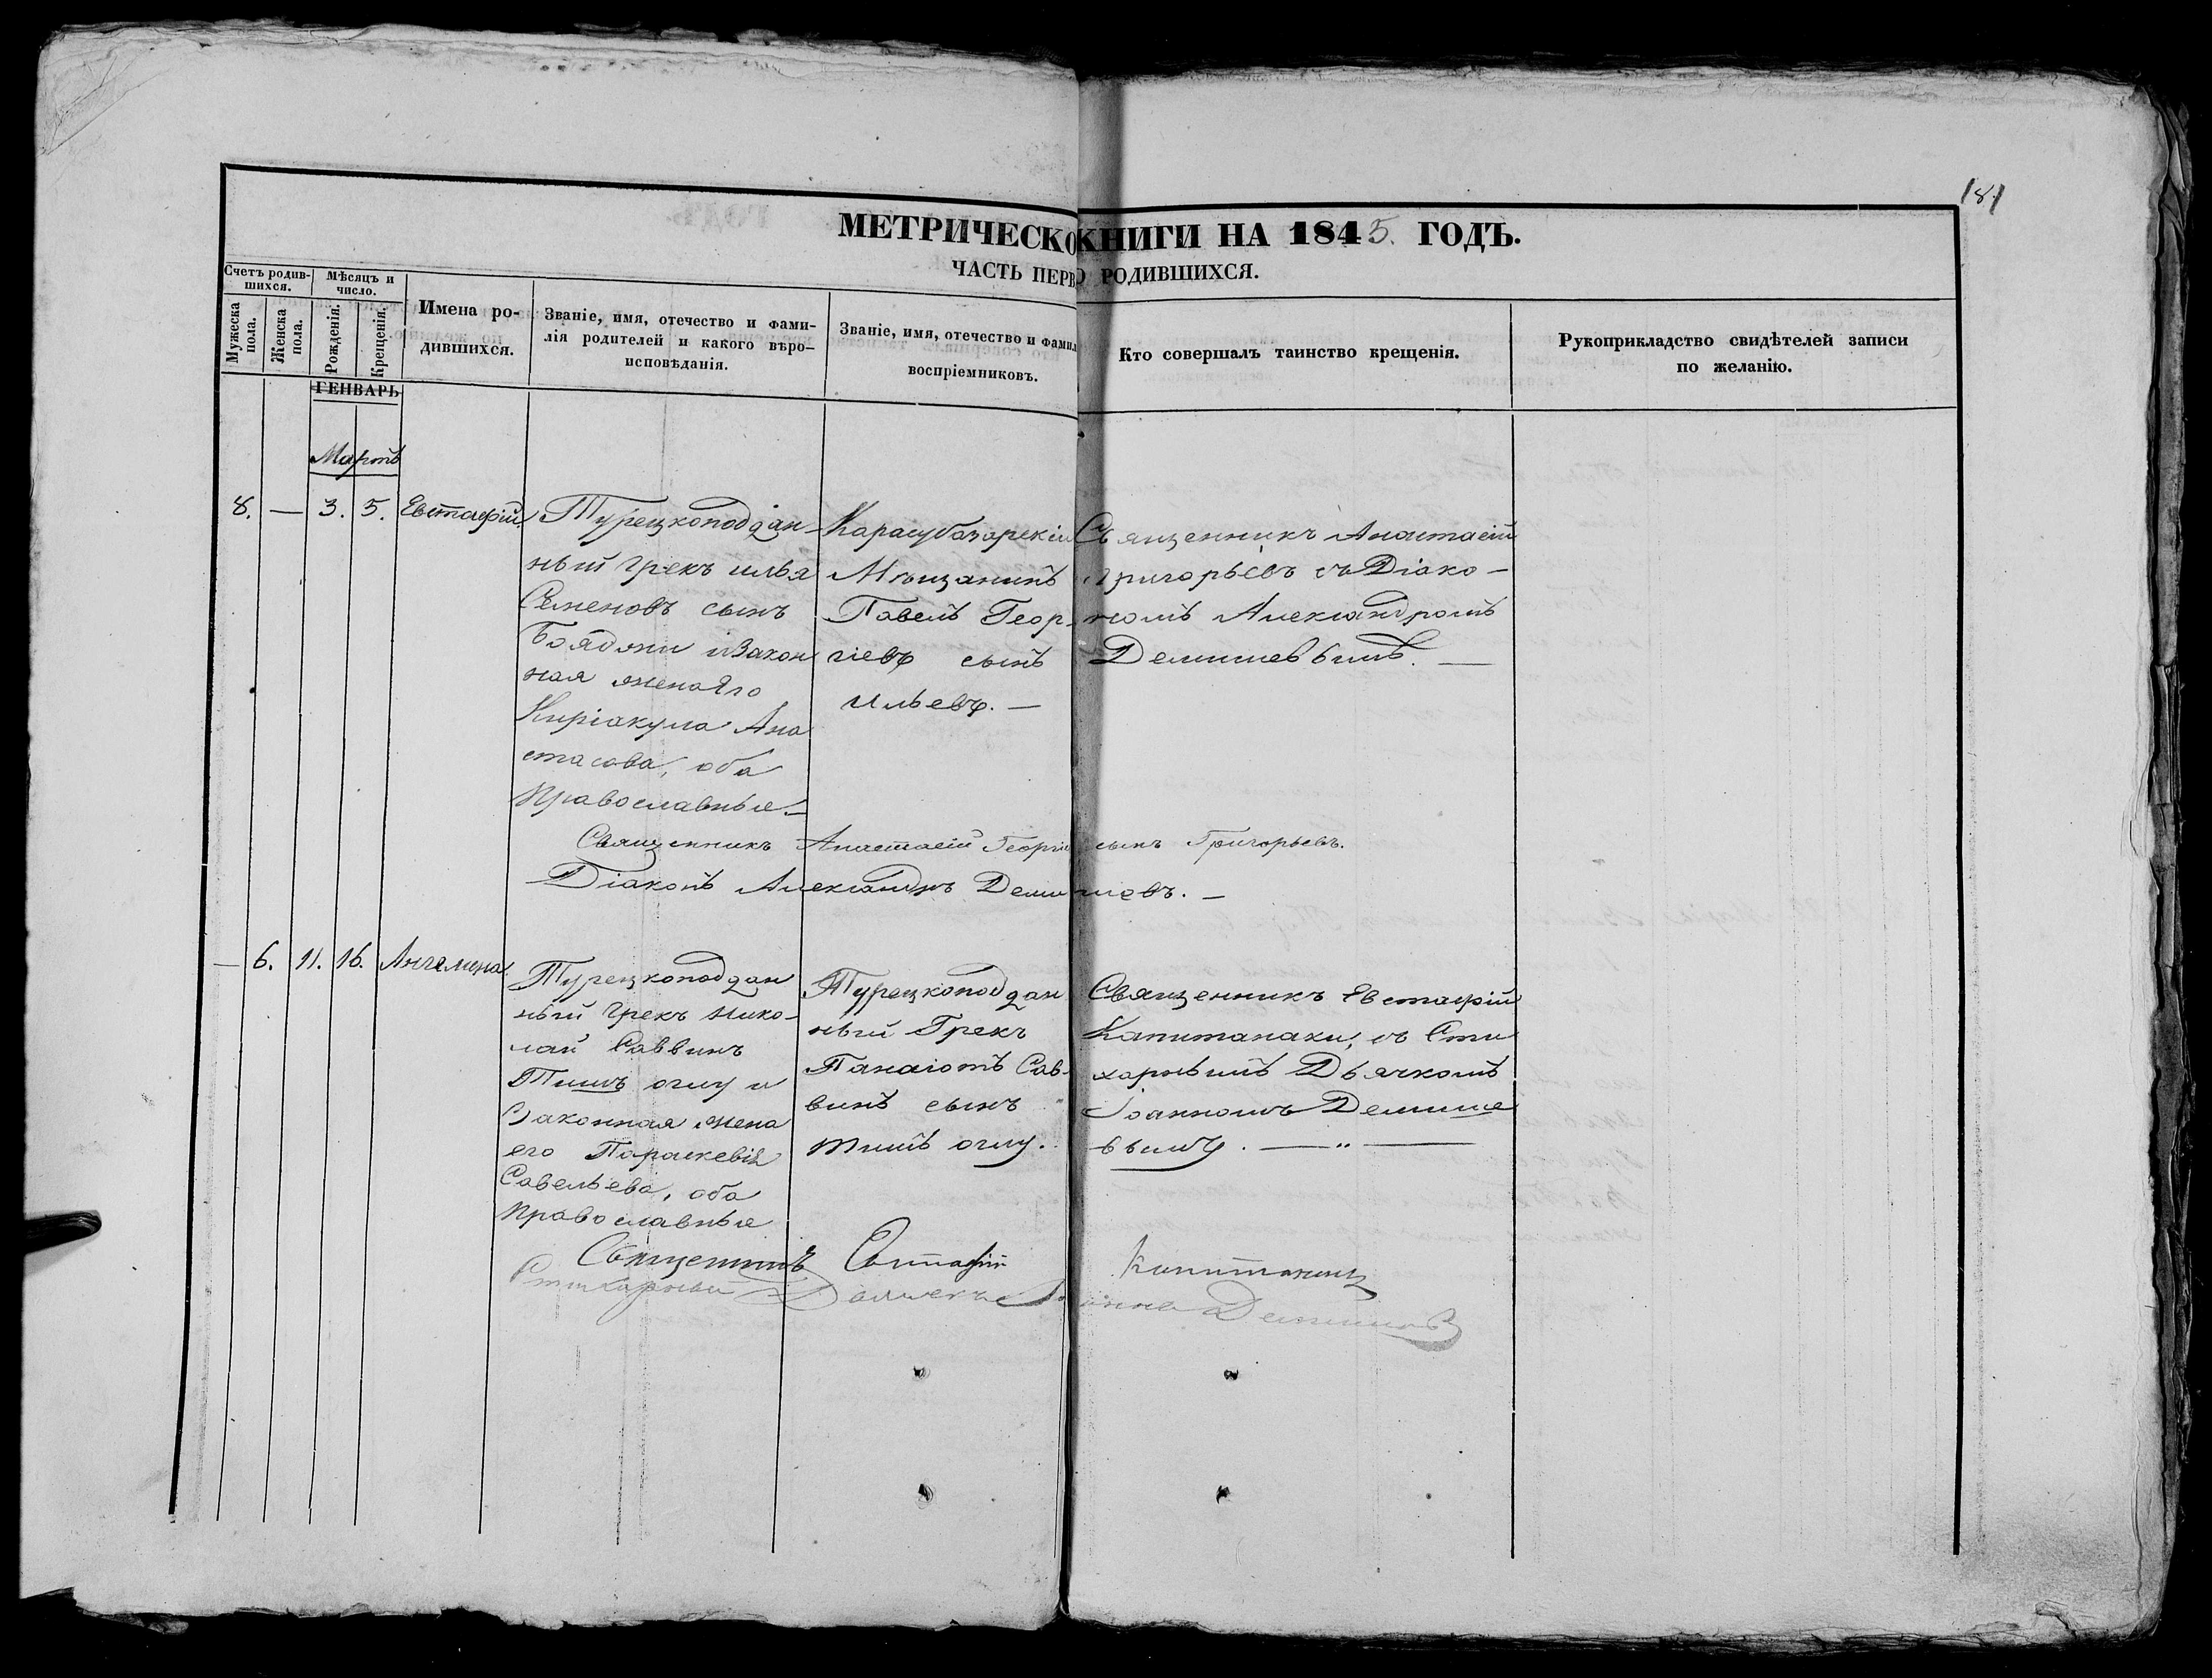 181
МЕТРИЧЕСКО КНИГИ НА 1845. ГОДЪ.
ЧАСТЬ ПЕРВО РОДИВШИХСЯ.
Счетъ родив-
шихся.
Мужеска
пола.
Женска
пола.
Мѣсяцъ и
число.
Рожденія.
Крещенія.
Имена ро-
дившихся.
Званіе, имя, отечество и фами-
лія родителей и какого вѣро-
исповѣданія.
Званіе, имя, отечество и фамил
воспріемниковъ.
Кто совершалъ таинство крещенія.
Рукоприкладство свидѣтелей записи
по желанію.
ГЕНВАРЬ
Мартъ
8. — 3. 5. Евстафій
Турецкоподдан-
ный Грекъ илья
Семеновъ сынъ
Бояджи и Закон
ная жена Его
Киріакула Ана
стасова, оба
Православные. —
Карасубазарскій
Мѣщанинъ
Павелъ Геор-
гіевъ сынъ
Ильевъ. —
Священникъ Анастасій
Григорьевъ съ Діако-
номъ Александромъ
Демишевымъ. —
Священникъ Анастасій Георгіи сынъ Григорьевъ.
Діаконъ Александръ Демишевъ. —
— 6. 11. 16. Ангелина
Турецкоподдан
ный Грекъ Нико-
лай Саввинъ
Тишъ оглу и
Законная жена
его Параскевія
Савельева, оба
Православные
Турецкоподдан
ный Грекъ
Панаіотъ Сав-
винъ сынъ
Тишъ оглу.
Священникъ Евстафій
Капитанаки, съ Сти
харнымъ Дьячкомъ
Іоанномъ Демише
вымъ. — " —
Священникъ Евстафій Капитанаки
Стихарный Дьячекъ Іоаннъ Демишевъ